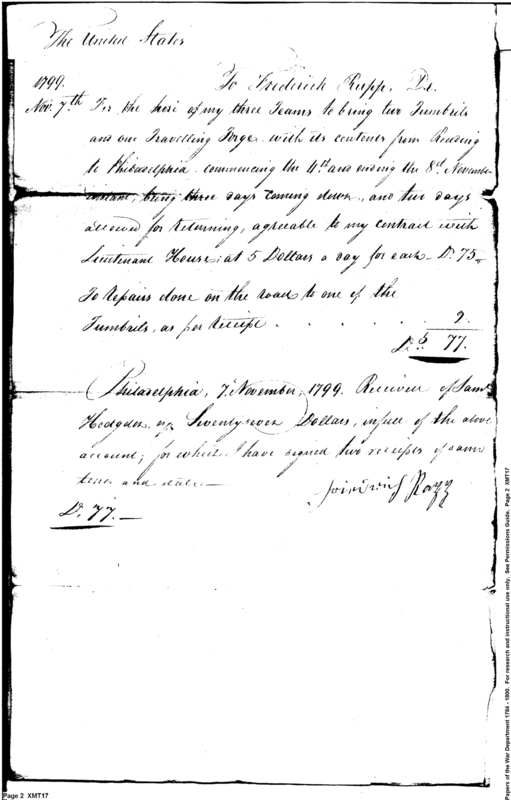 The United States
1799. To Frederick Rupp, Dr.
Nov. 7th For the hire of my three Teams to bring two Tumbrils
and one Travelling Forge, with its contents from Reading
to Philadelphia, commencing the 4th and ending the 8th November
instant, being three days coming down, and two days
allowed for returning, agreeable to my contract with
Lieutenant House; at 5 Dollars a day for each - Ds. 75 -
To Repairs done on the road to one of the
Tumbrils, as per Receipt . . . . . 2.
Ds. 77.
Philadelphia, 7 November, 1799. Received of Saml
Hodgdon, Seventy seven Dollars, in full of the above
account; for which I have signed two receipts of same
tenor and date. -
Ds. 77. -
Page 2 XMT17
Papers of the War Department 1784 - 1800. For research and instructional use only. See Permissions Guide. Page 2 XMT17